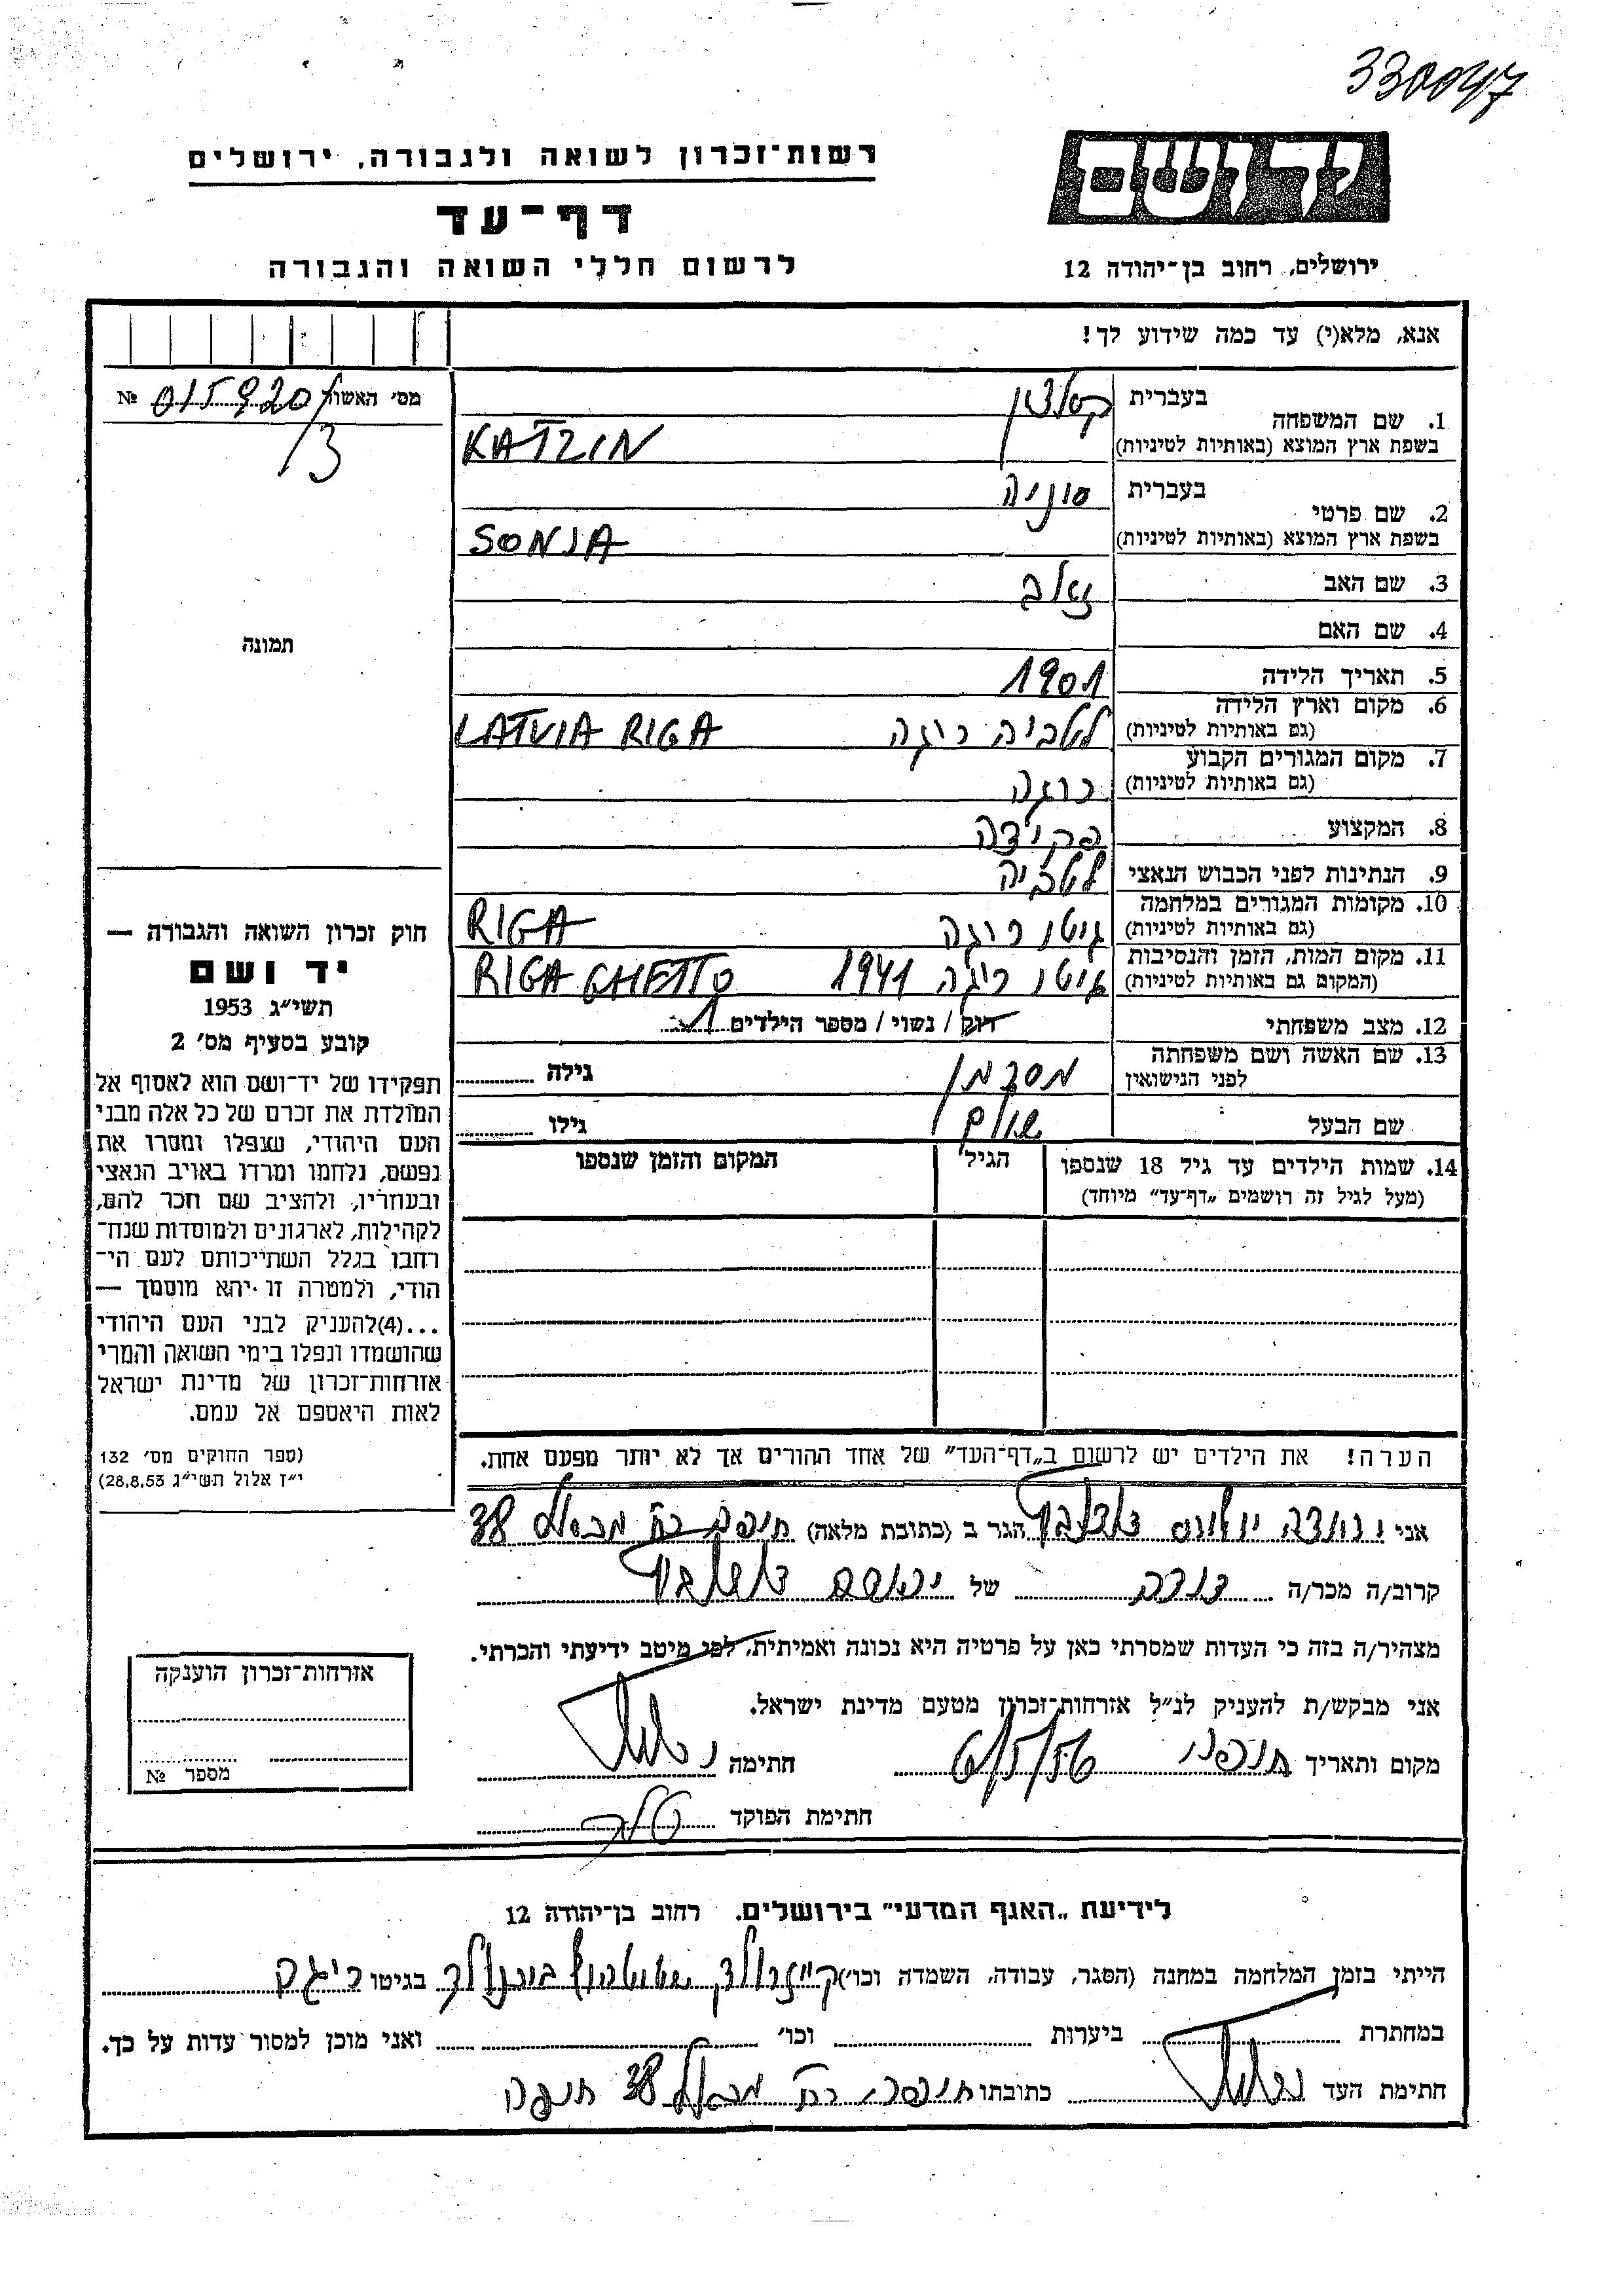 330047
יד ושם
רשות־זכרון לשואה ולגבורה, ירושלים
דף־עד
לרשום חללי השואה והגבורה
ירושלים, רחוב בן־יהודה 12
אנא, מלא(י) עד כמה שידוע לך!
מס׳ האשור 015920/ №
13
1. שם המשפחה בעברית
בשפת ארץ המוצא (באותיות לטיניות) KATZIN
2. שם פרטי בעברית סוניה
בשפת ארץ המוצא (באותיות לטיניות) SONJA
3. שם האב זאב
4. שם האם
תמונה
5. תאריך הלידה 1901
6. מקום וארץ הלידה
(גם באותיות לטיניות) לטביה ריגה LATVIA RIGA
7. מקום המגורים הקבוע
(גם באותיות לטיניות) ריגה
8. המקצוע פקידה
9. הנתינות לפני הכבוש הנאצי לטביה
10. מקומות המגורים במלחמה
(גם באותיות לטיניות) גיטו ריגה RIGA
11. מקום המות, הזמן והנסיבות
(המקום גם באותיות לטיניות) גיטו ריגה 1941 RIGA GHETTO
12. מצב משפחתי רוק / נשוי / מספר הילדים 1
13. שם האשה ושם משפחתה
לפני הנישואין גילה
שם הבעל גילו
14. שמות הילדים עד גיל 18 שנספו הגיל המקום והזמן שנספו
(מעל לגיל זה רושמים „דף־עד” מיוחד)
חוק זכרון השואה והגבורה —
יד ושם
תשי״ג 1953
קובע בסעיף מס׳ 2
תפקידו של יד־ושם הוא לאסוף אל
המולדת את זכרם של כל אלה מבני
העם היהודי, שנפלו ומסרו את
נפשם, נלחמו ומרדו באויב הנאצי
ובעוזריו, ולהציב שם וזכר להם,
לקהילות, לארגונים ולמוסדות שנח־
רבו בגלל השתייכותם לעם הי־
הודי, ולמטרה זו יהא מוסמך —
...(4)להעניק לבני העם היהודי
שהושמדו ונפלו בימי השואה והמרי
אזרחות־זכרון של מדינת ישראל
לאות היאספם אל עמם.
(ספר החוקים מס׳ 132
י״ז אלול תשי״ג 28,8,53)
הערה! את הילדים יש לרשום ב„דף־העד” של אחד ההורים אך לא יותר מפעם אחת.
אני הגר ב (כתובת מלאה) 38
קרוב/ה מכר/ה דודה של
מצהיר/ה בזה כי העדות שמסרתי כאן על פרטיה היא נכונה ואמיתית, לפי מיטב ידיעתי והכרתי.
אני מבקש/ת להעניק לנ״ל אזרחות־זכרון מטעם מדינת ישראל.
מקום ותאריך 6/5/56 חתימה
חתימת הפוקד
אזרחות־זכרון הוענקה
מספר №
לידיעת „האגף המדעי” בירושלים. רחוב בן־יהודה 12
הייתי בזמן המלחמה במחנה (הסגר, עבודה, השמדה וכו׳) קייזרולד שטוטהוף בוכנולד בגיטו ריגה
במחתרת ביערות וכו׳ ואני מוכן למסור עדות על כך.
חתימת העד כתובתו 38 חיפה